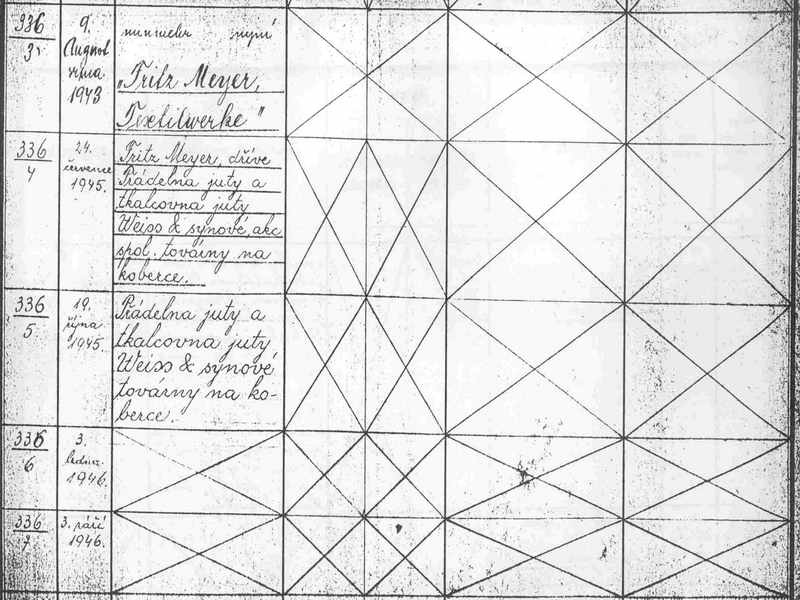 336
3
9.
srpna
1943
nyní
„Fritz Meyer,
Textilwerke"
336
4
24.
července
1945.
Fritz Meyer, dříve
Přádelna juty a
tkalcovna juty
Weiss & synové, akc
spol. továrny na
koberce.
336
5
19.
října
1945.
Přádelna juty a
tkalcovna juty
Weiss & synové
továrny na ko-
berce.
336
6
3.
ledna
1946.
336
7
3. září
1946.